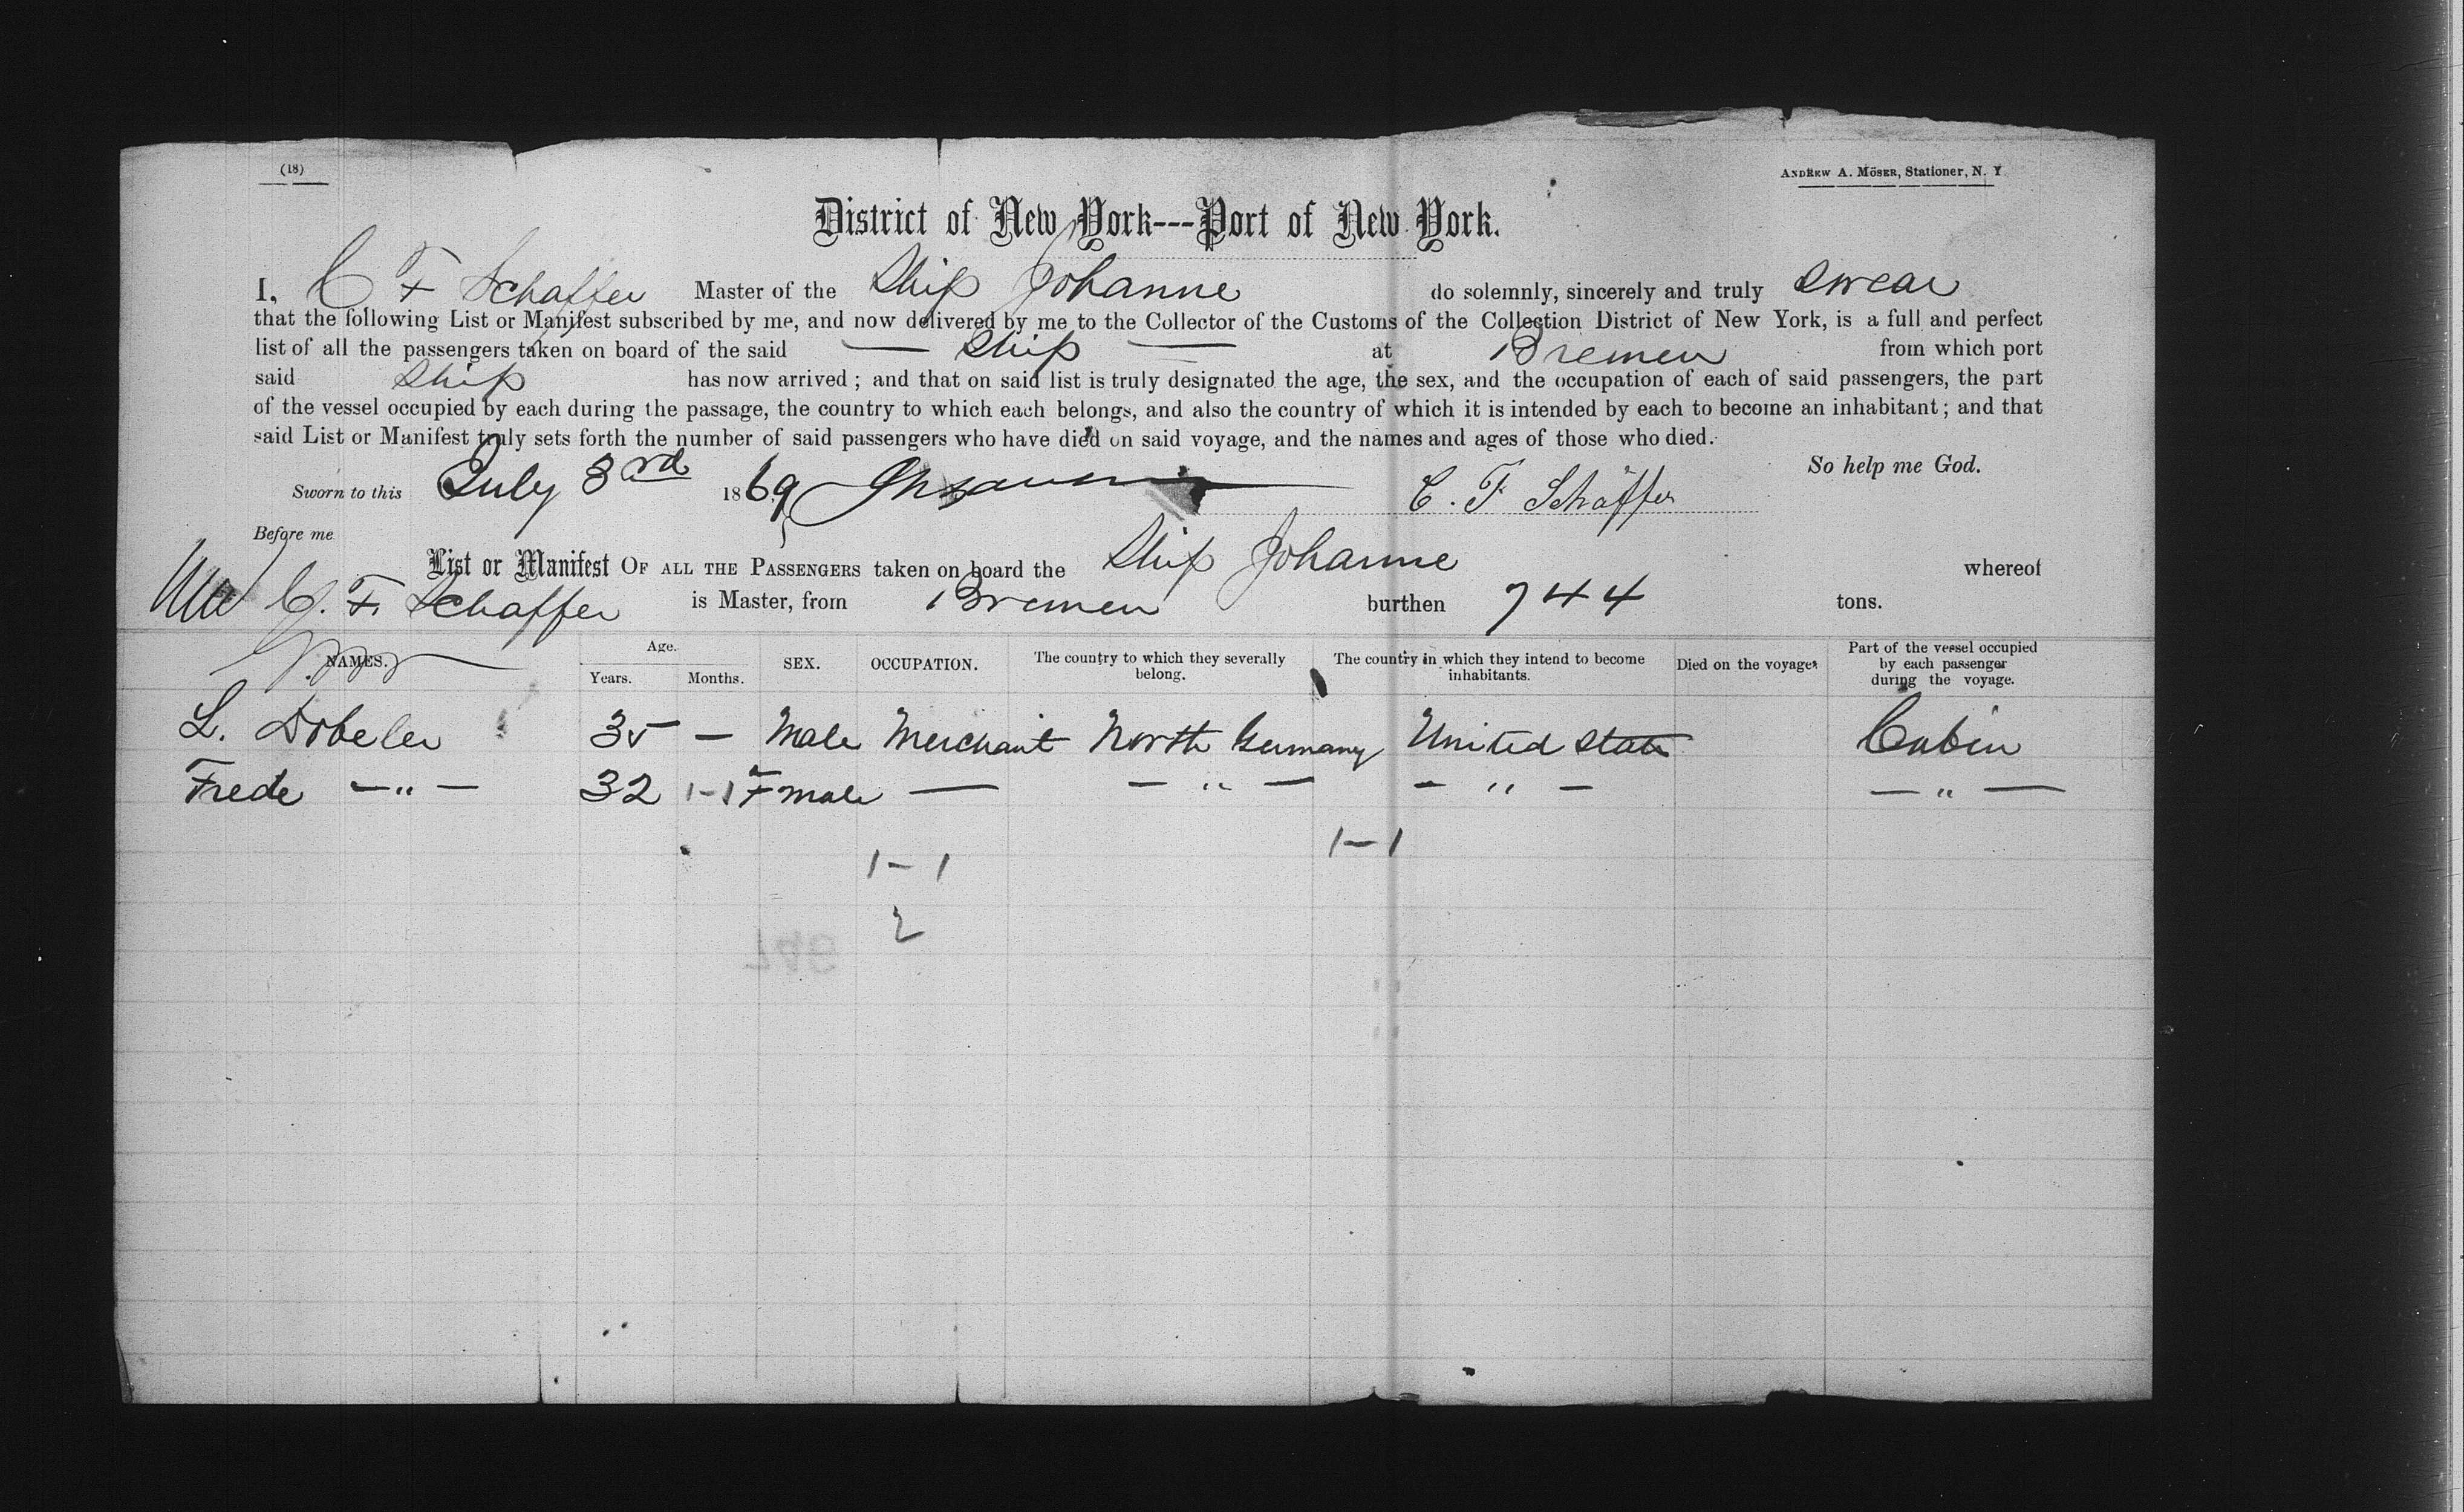 (18)
ANDREW A. MÖSER, Stationer, N. Y
District of New York---Port of New York.
I, C F Schaffer Master of the Ship Johanne do solemnly, sincerely and truly swear
that the following List or Manifest subscribed by me, and now delivered by me to the Collector of the Customs of the Collection District of New York, is a full and perfect
list of all the passengers taken on board of the said — Ship — at Bremen from which port
said Ship has now arrived; and that on said list is truly designated the age, the sex, and the occupation of each of said passengers, the part
of the vessel occupied by each during the passage, the country to which each belongs, and also the country of which it is intended by each to become an inhabitant; and that
said List or Manifest truly sets forth the number of said passengers who have died on said voyage, and the names and ages of those who died.
So help me God.
Sworn to this July 3rd 1869 C. F Schäffer
Before me
List or Manifest OF ALL THE PASSENGERS taken on board the Ship Johanne whereof
C. F. Schaffer is Master, from Bremen burthen 744 tons.
NAMES. Age. Years. Months. SEX. OCCUPATION. The country to which they severally belong. The country in which they intend to become inhabitants. Died on the voyage. Part of the vessel occupied by each passenger during the voyage.
L. Dobeler 35 — Male Merchant North Germany United State Cabin
Frede — " — 32 1-1 Fmale — — " — — " — — " —
1-1
1-1
2